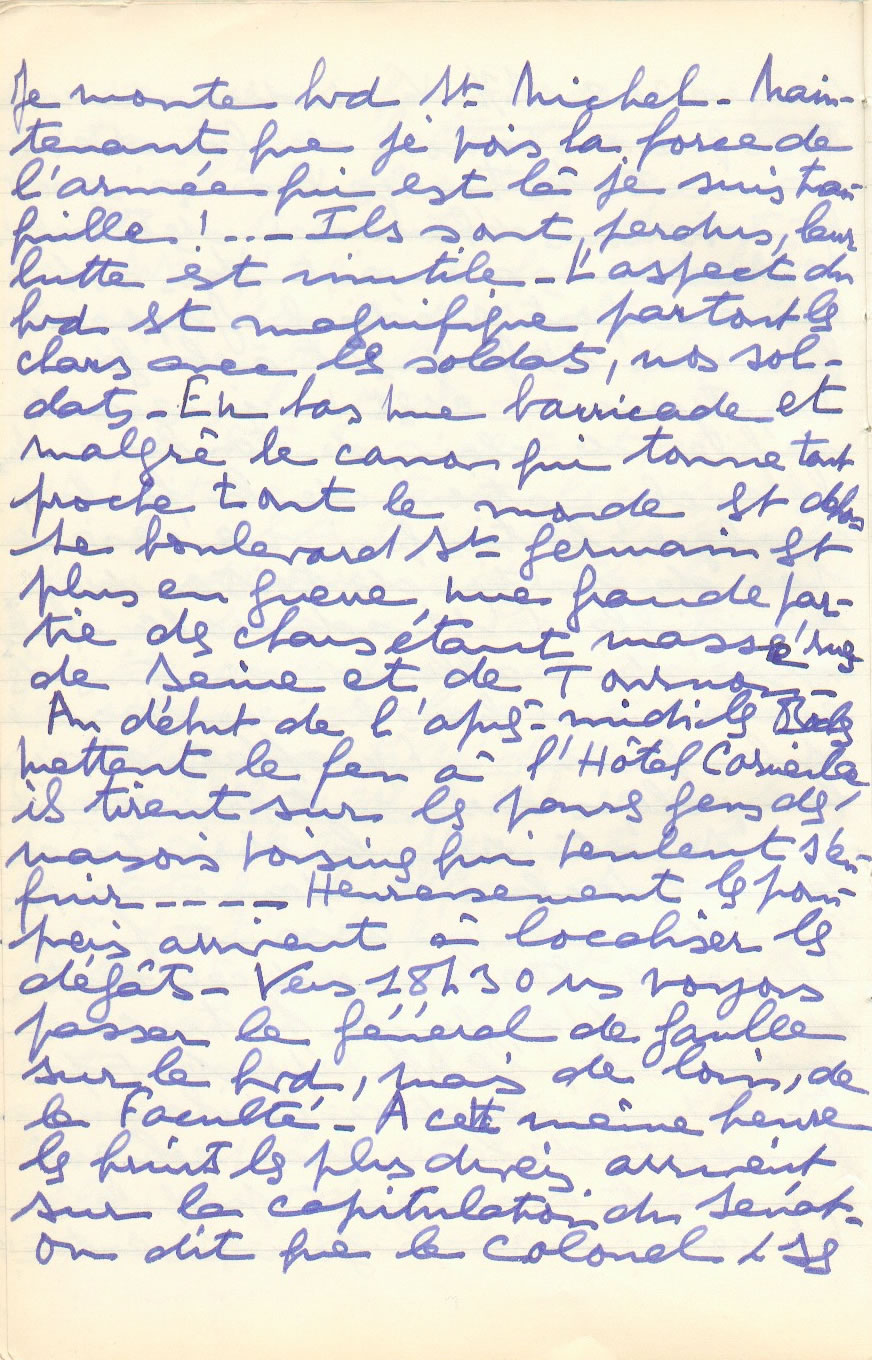 Je monte bvd St Michel - Main-
tenant que je vois la force de
l'armée qui est là je suis tran-
quille !...- Ils sont perdus, leur
lutte est inutile - L'aspect du
bvd est magnifique partout les
chars avec les soldats, nos sol-
dats - En bas une barricade et
malgré le canon qui tonne tout
proche tout le monde est dehors
Le boulevard St Germain est
plus en guerre, une grande par-
tie des chars étant massée rues
de Seine et de Tournon -
Au début de l'après-midi les Boches
mettent le feu à l'Hôtel Corneille
ils tirent sur les pauvres gens des
maisons voisines qui veulent s'en-
fuir ----- Heureusement les pom-
piers arrivent à localiser les
dégâts - Vers 18h30 ns voyons
passer le général de Gaulle
sur le bvd, mais de loin, de
la Faculté - A cette même heure
les bruits les plus divers arrivent
sur la capitulation du Sénat -
on dit que le Colonel SS